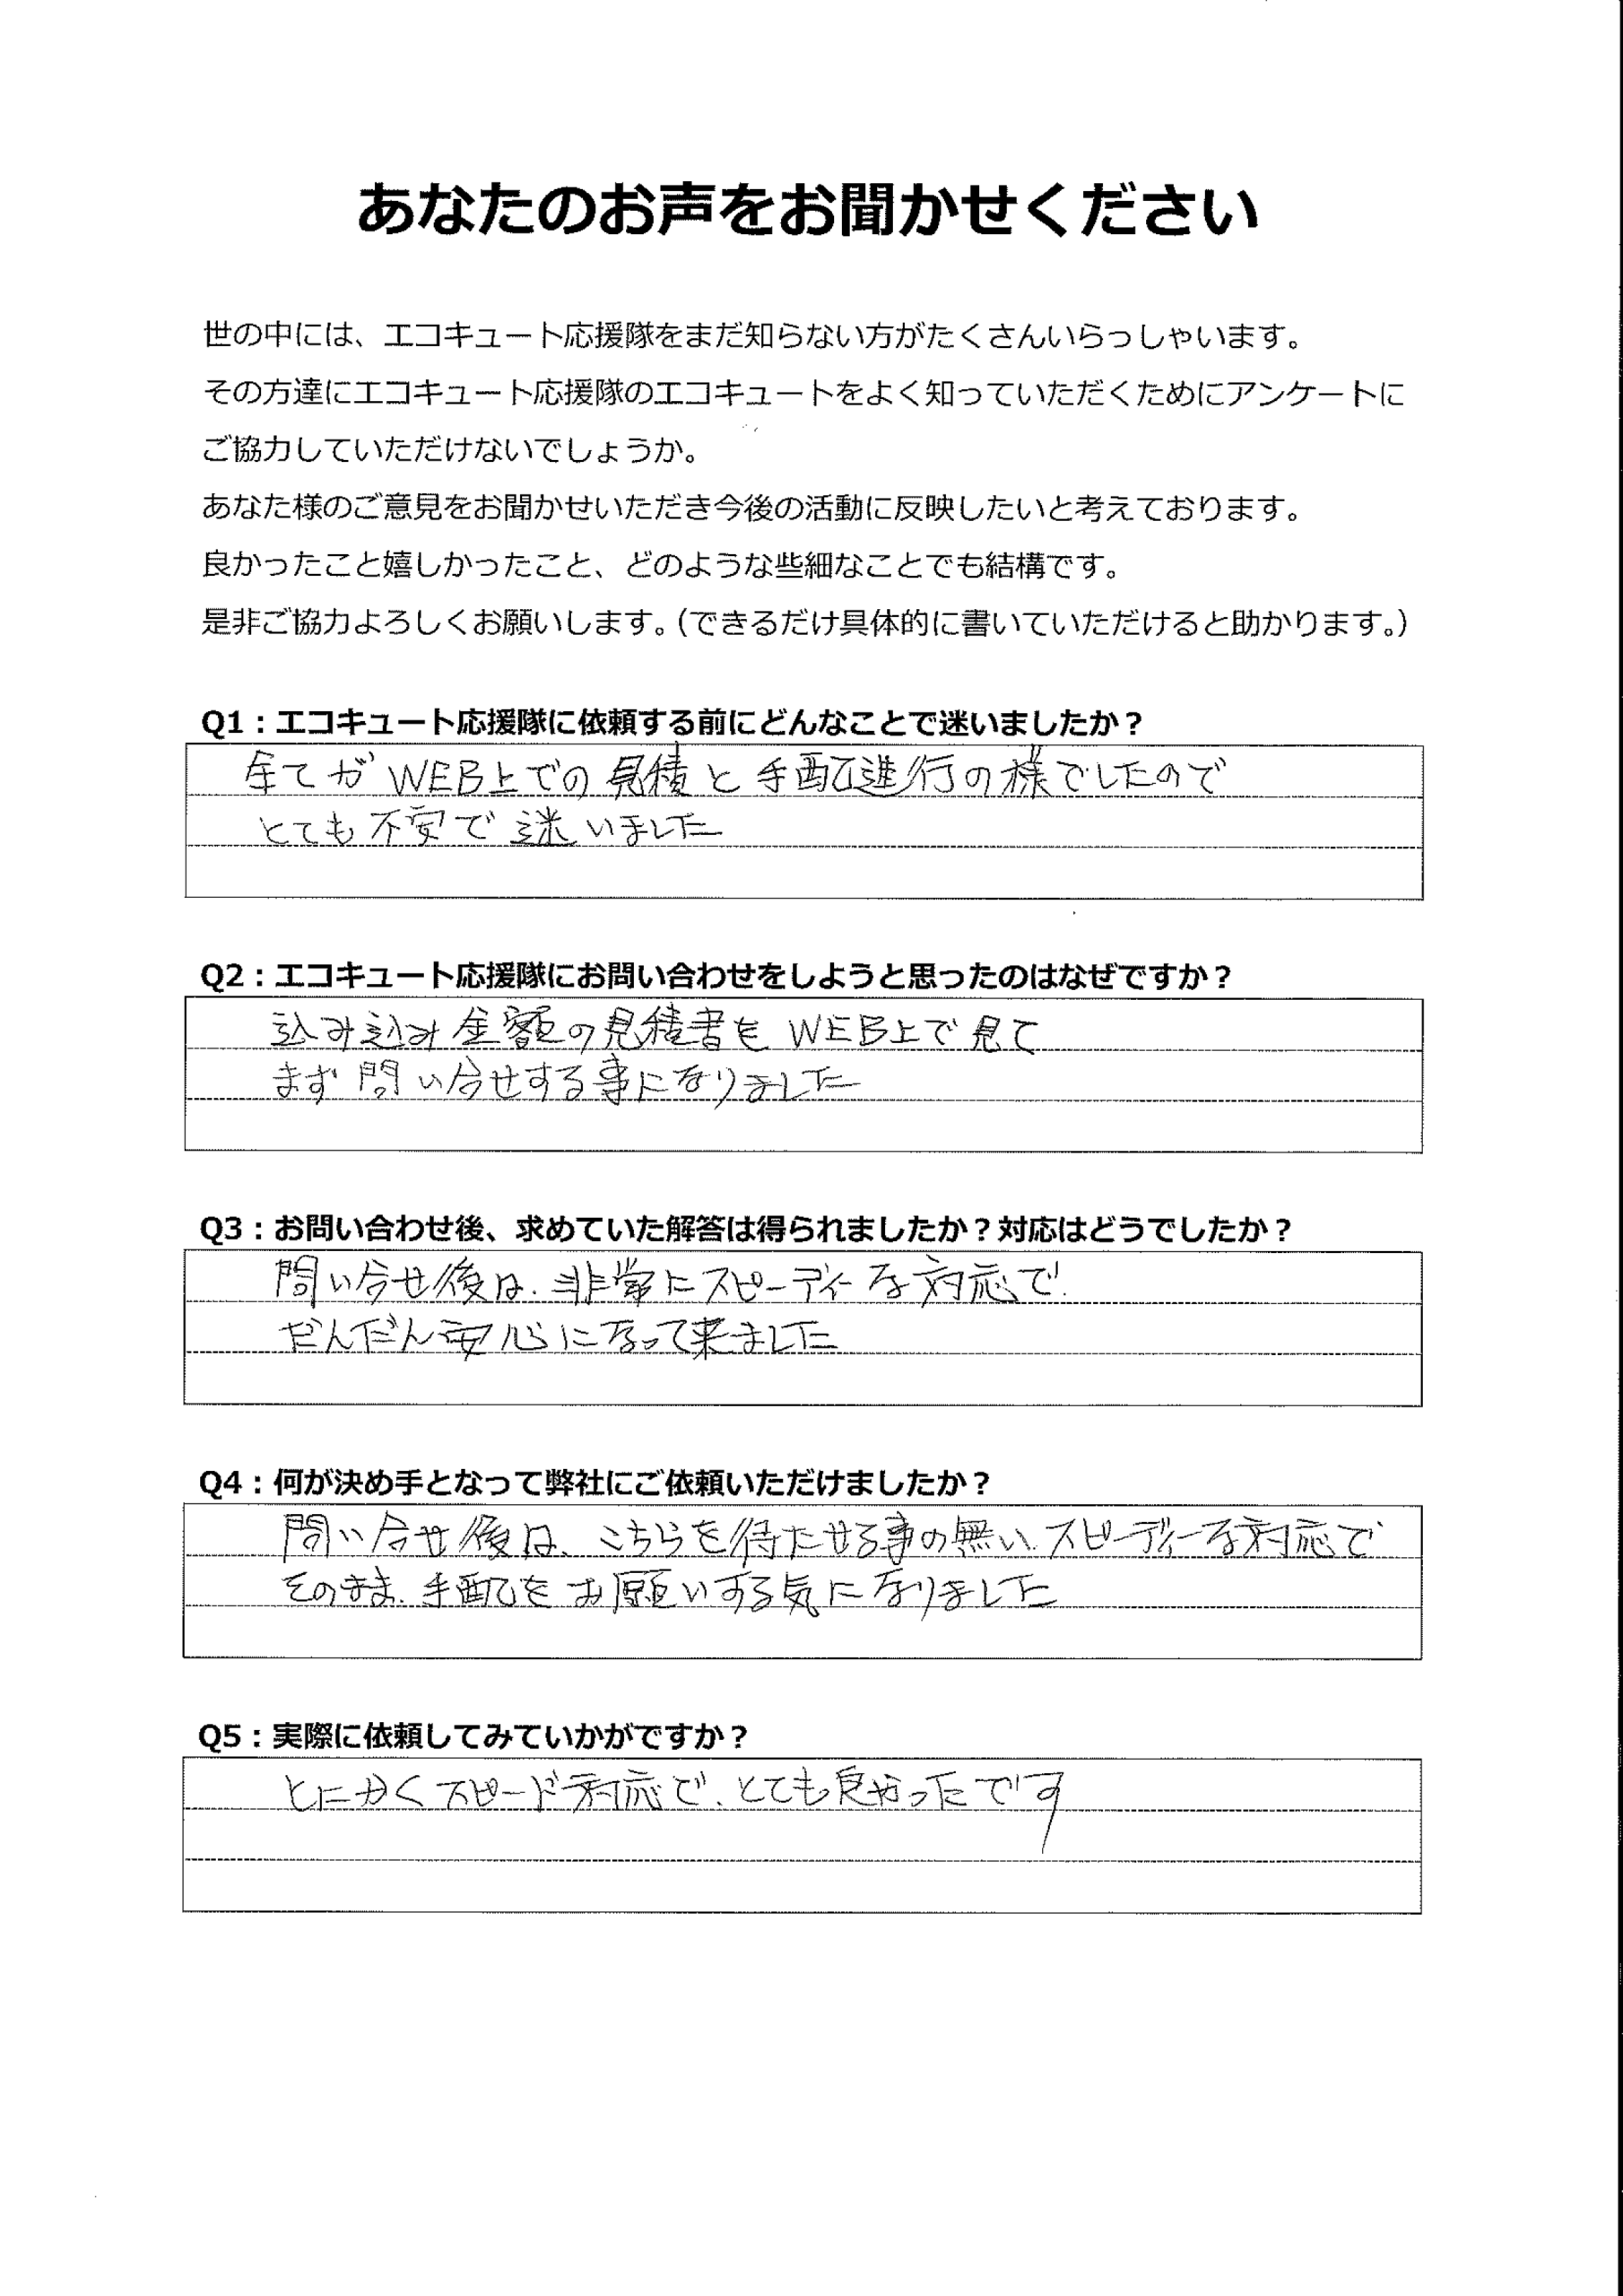 あなたのお声をお聞かせください
世の中には、エコキュート応援隊をまだ知らない方がたくさんいらっしゃいます。
その方達にエコキュート応援隊のエコキュートをよく知っていただくためにアンケートに
ご協力していただけないでしょうか。
あなた様のご意見をお聞かせいただき今後の活動に反映したいと考えております。
良かったこと嬉しかったこと、どのような些細なことでも結構です。
是非ご協力よろしくお願いします。（できるだけ具体的に書いていただけると助かります。）
Q1：エコキュート応援隊に依頼する前にどんなことで迷いましたか？
全てが WEB上での見積と手配進行の様でしたので
とても不安で迷いました
Q2：エコキュート応援隊にお問い合わせをしようと思ったのはなぜですか？
込み込み金額の見積書を WEB上で見て
まず問い合せする事になりました
Q3：お問い合わせ後、求めていた解答は得られましたか？対応はどうでしたか？
問い合せ後は、非常にスピーディな対応で、
だんだん安心になって来ました
Q4：何が決め手となって弊社にご依頼いただけましたか？
問い合せ後は、こちらを待たせる事の無い、スピーディーな対応で
そのまま、手配をお願いする気になりました
Q5：実際に依頼してみていかがですか？
とにかくスピード対応で、とても良かったです